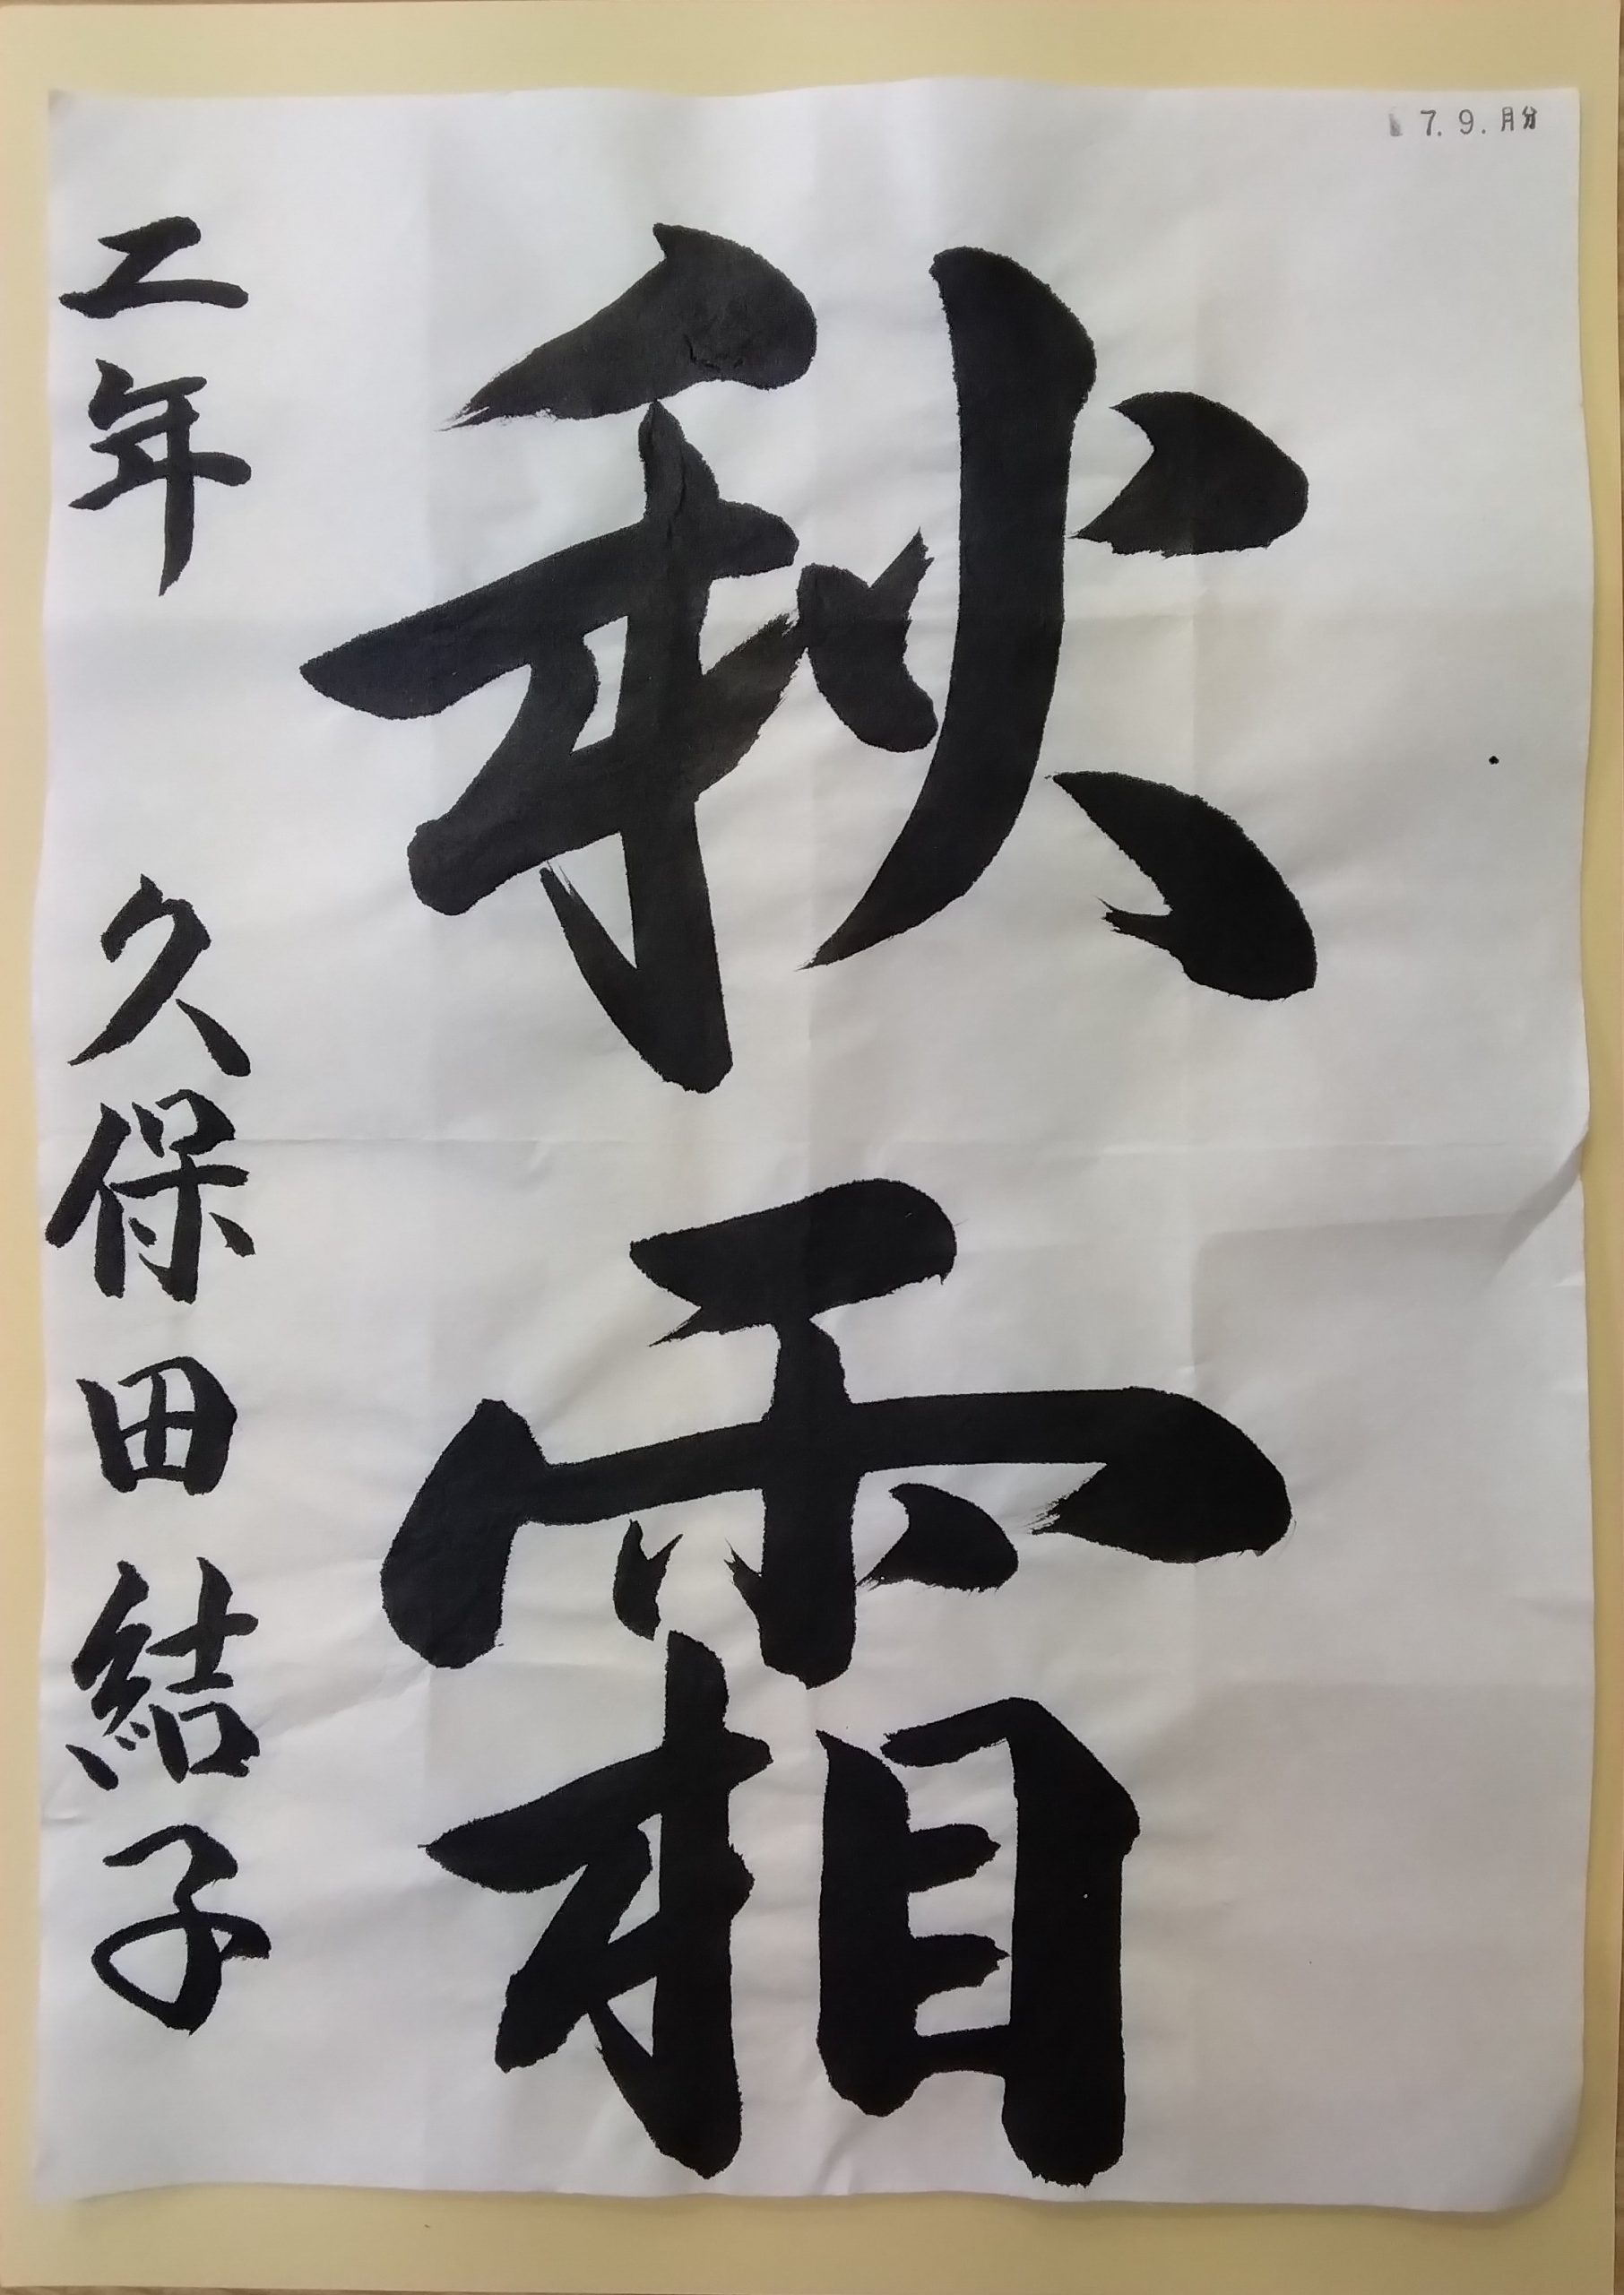 7.9.月分
秋霜
二年 久保田結子